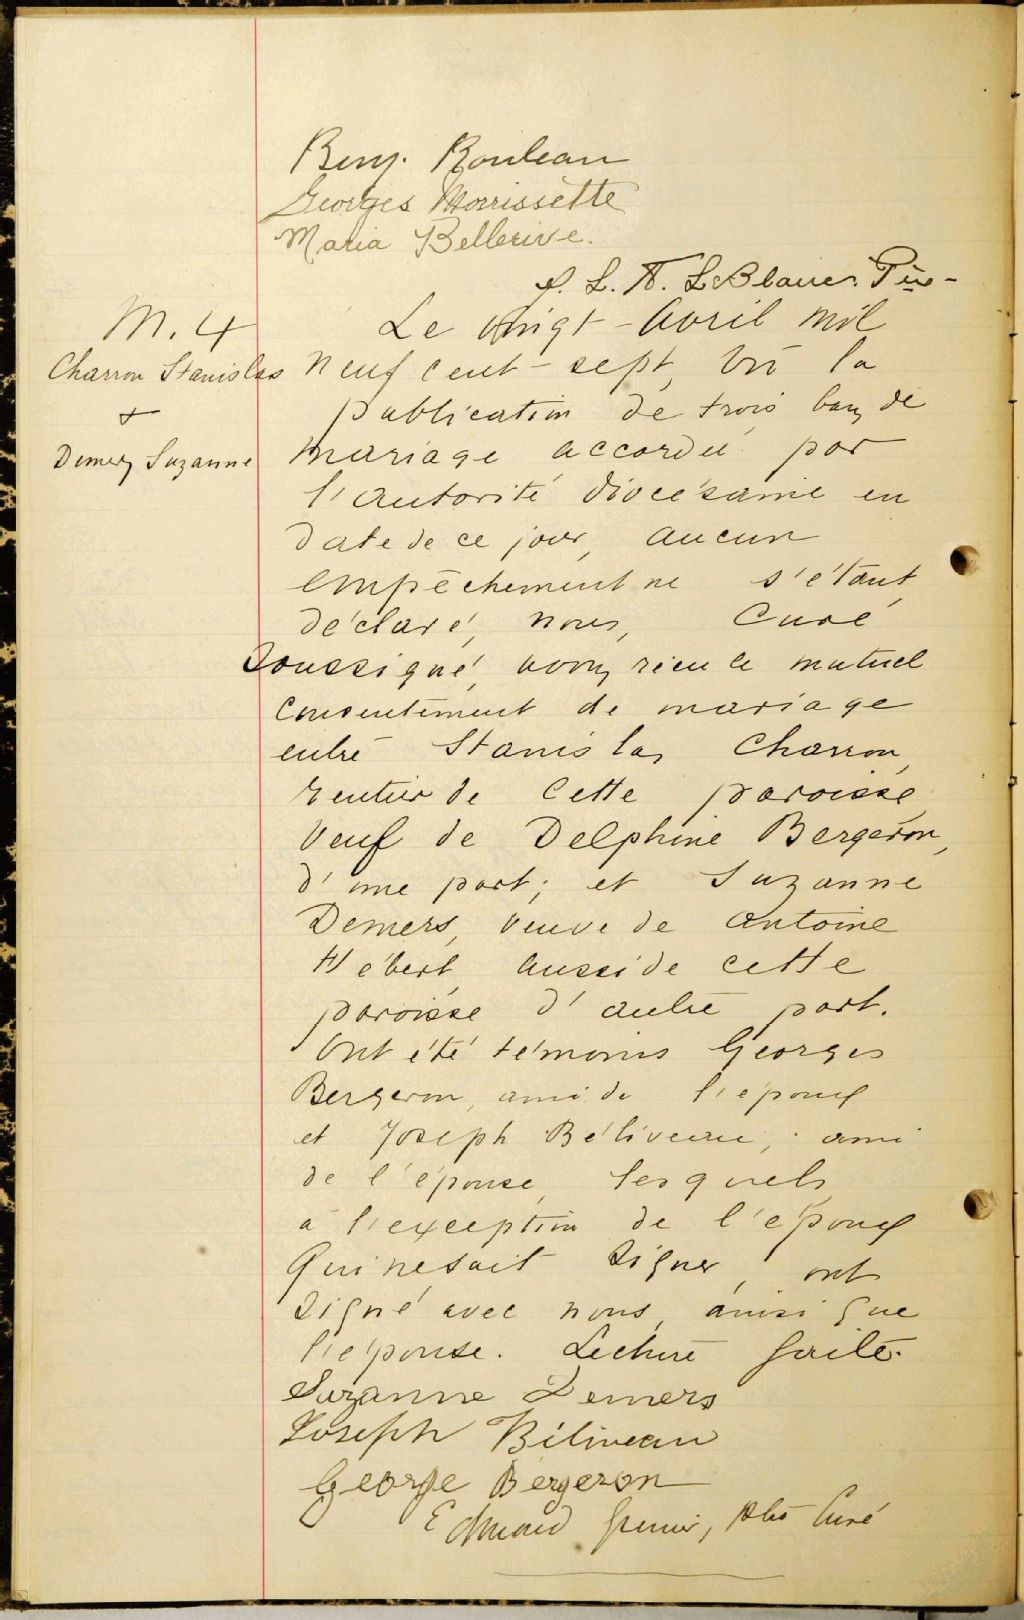 Benj. Rouleau
Georges Morrissette
Maria Bellerive.
L. A. LeBlanc. Ptre
M. 4
Charron Stanislas
&
Demers Suzanne
Le vingt-Avril mil
neuf cent-sept, vu la
publication de trois bans de
mariage accordée par
l'autorité diocésaine en
date de ce jour, aucun
empêchement ne s'étant
déclaré, nous, Curé
soussigné, avons reçu le mutuel
consentement de mariage
entre Stanislas Charron,
rentier de cette paroisse
veuf de Delphine Bergeron,
d'une part; et Suzanne
Demers, veuve de Antoine
Hébert, aussi de cette
paroisse d'autre part.
Ont été témoins Georges
Bergeron, ami de l'époux
et Joseph Béliveau, ami
de l'épouse, lesquels
à l'exception de l'époux
qui ne sait signer, ont
signé avec nous, ainsi que
l'épouse. Lecture faite.
Suzanne Demers
Joseph Béliveau
George Bergeron
Edmond Grenier, Ptre Curé